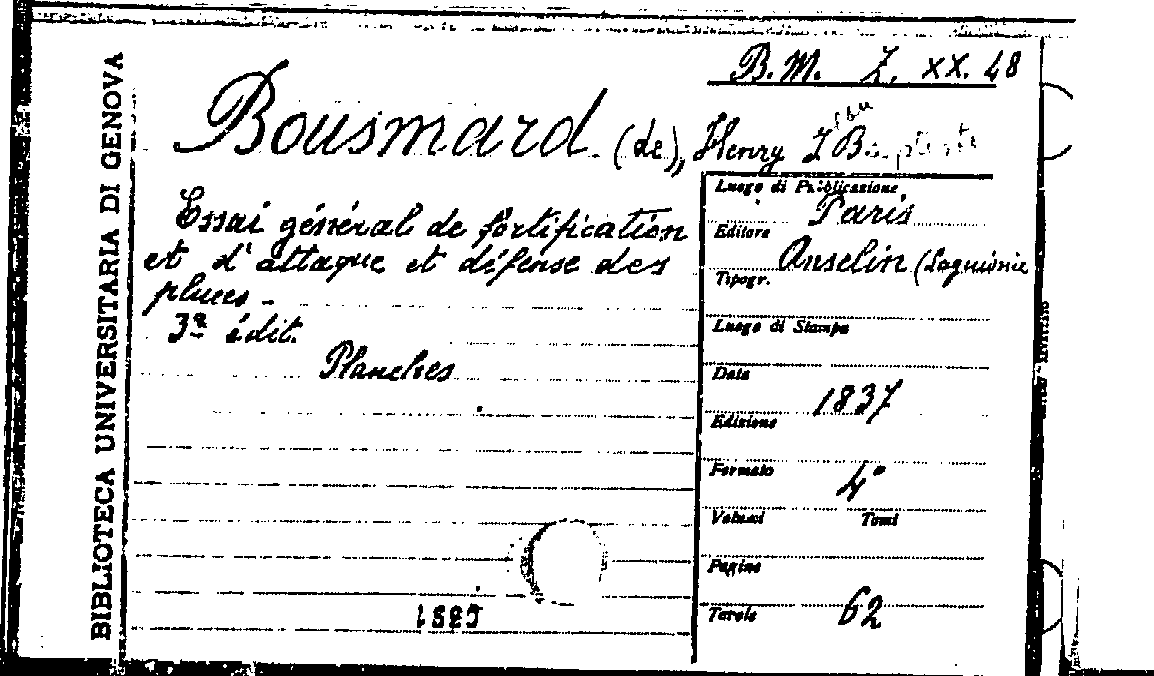 B.M. Z. XX. 48
BIBLIOTECA UNIVERSITARIA DI GENOVA
Bousmard (de), Henry Jean Baptiste
Essai général de fortification
et d'attaque et défense des
places -
3ª édit.
Planches
Luogo di Pubblicazione
Paris
Editore
Anselin (Laguionie
Tipogr.
Luogo di Stampa
Data
1837
Edizione
Formato
4°
Volumi Tomi
Pagine
Tavole
62